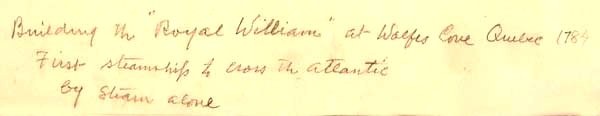 Building the "Royal William" at Wolfes Cove Quebec 1784
First steamship to cross the Atlantic
by steam alone